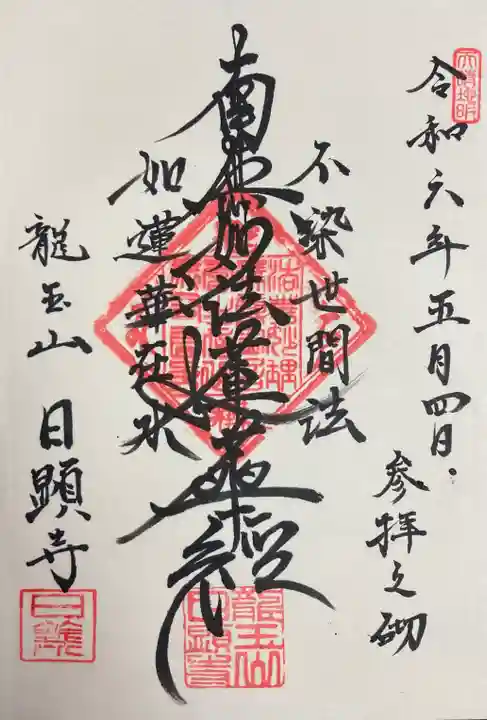 令和六年五月四日
参拝之砌
不染世間法
南無妙法蓮華経
如蓮華在水
龍玉山 日顕寺
龍玉山
日顕寺